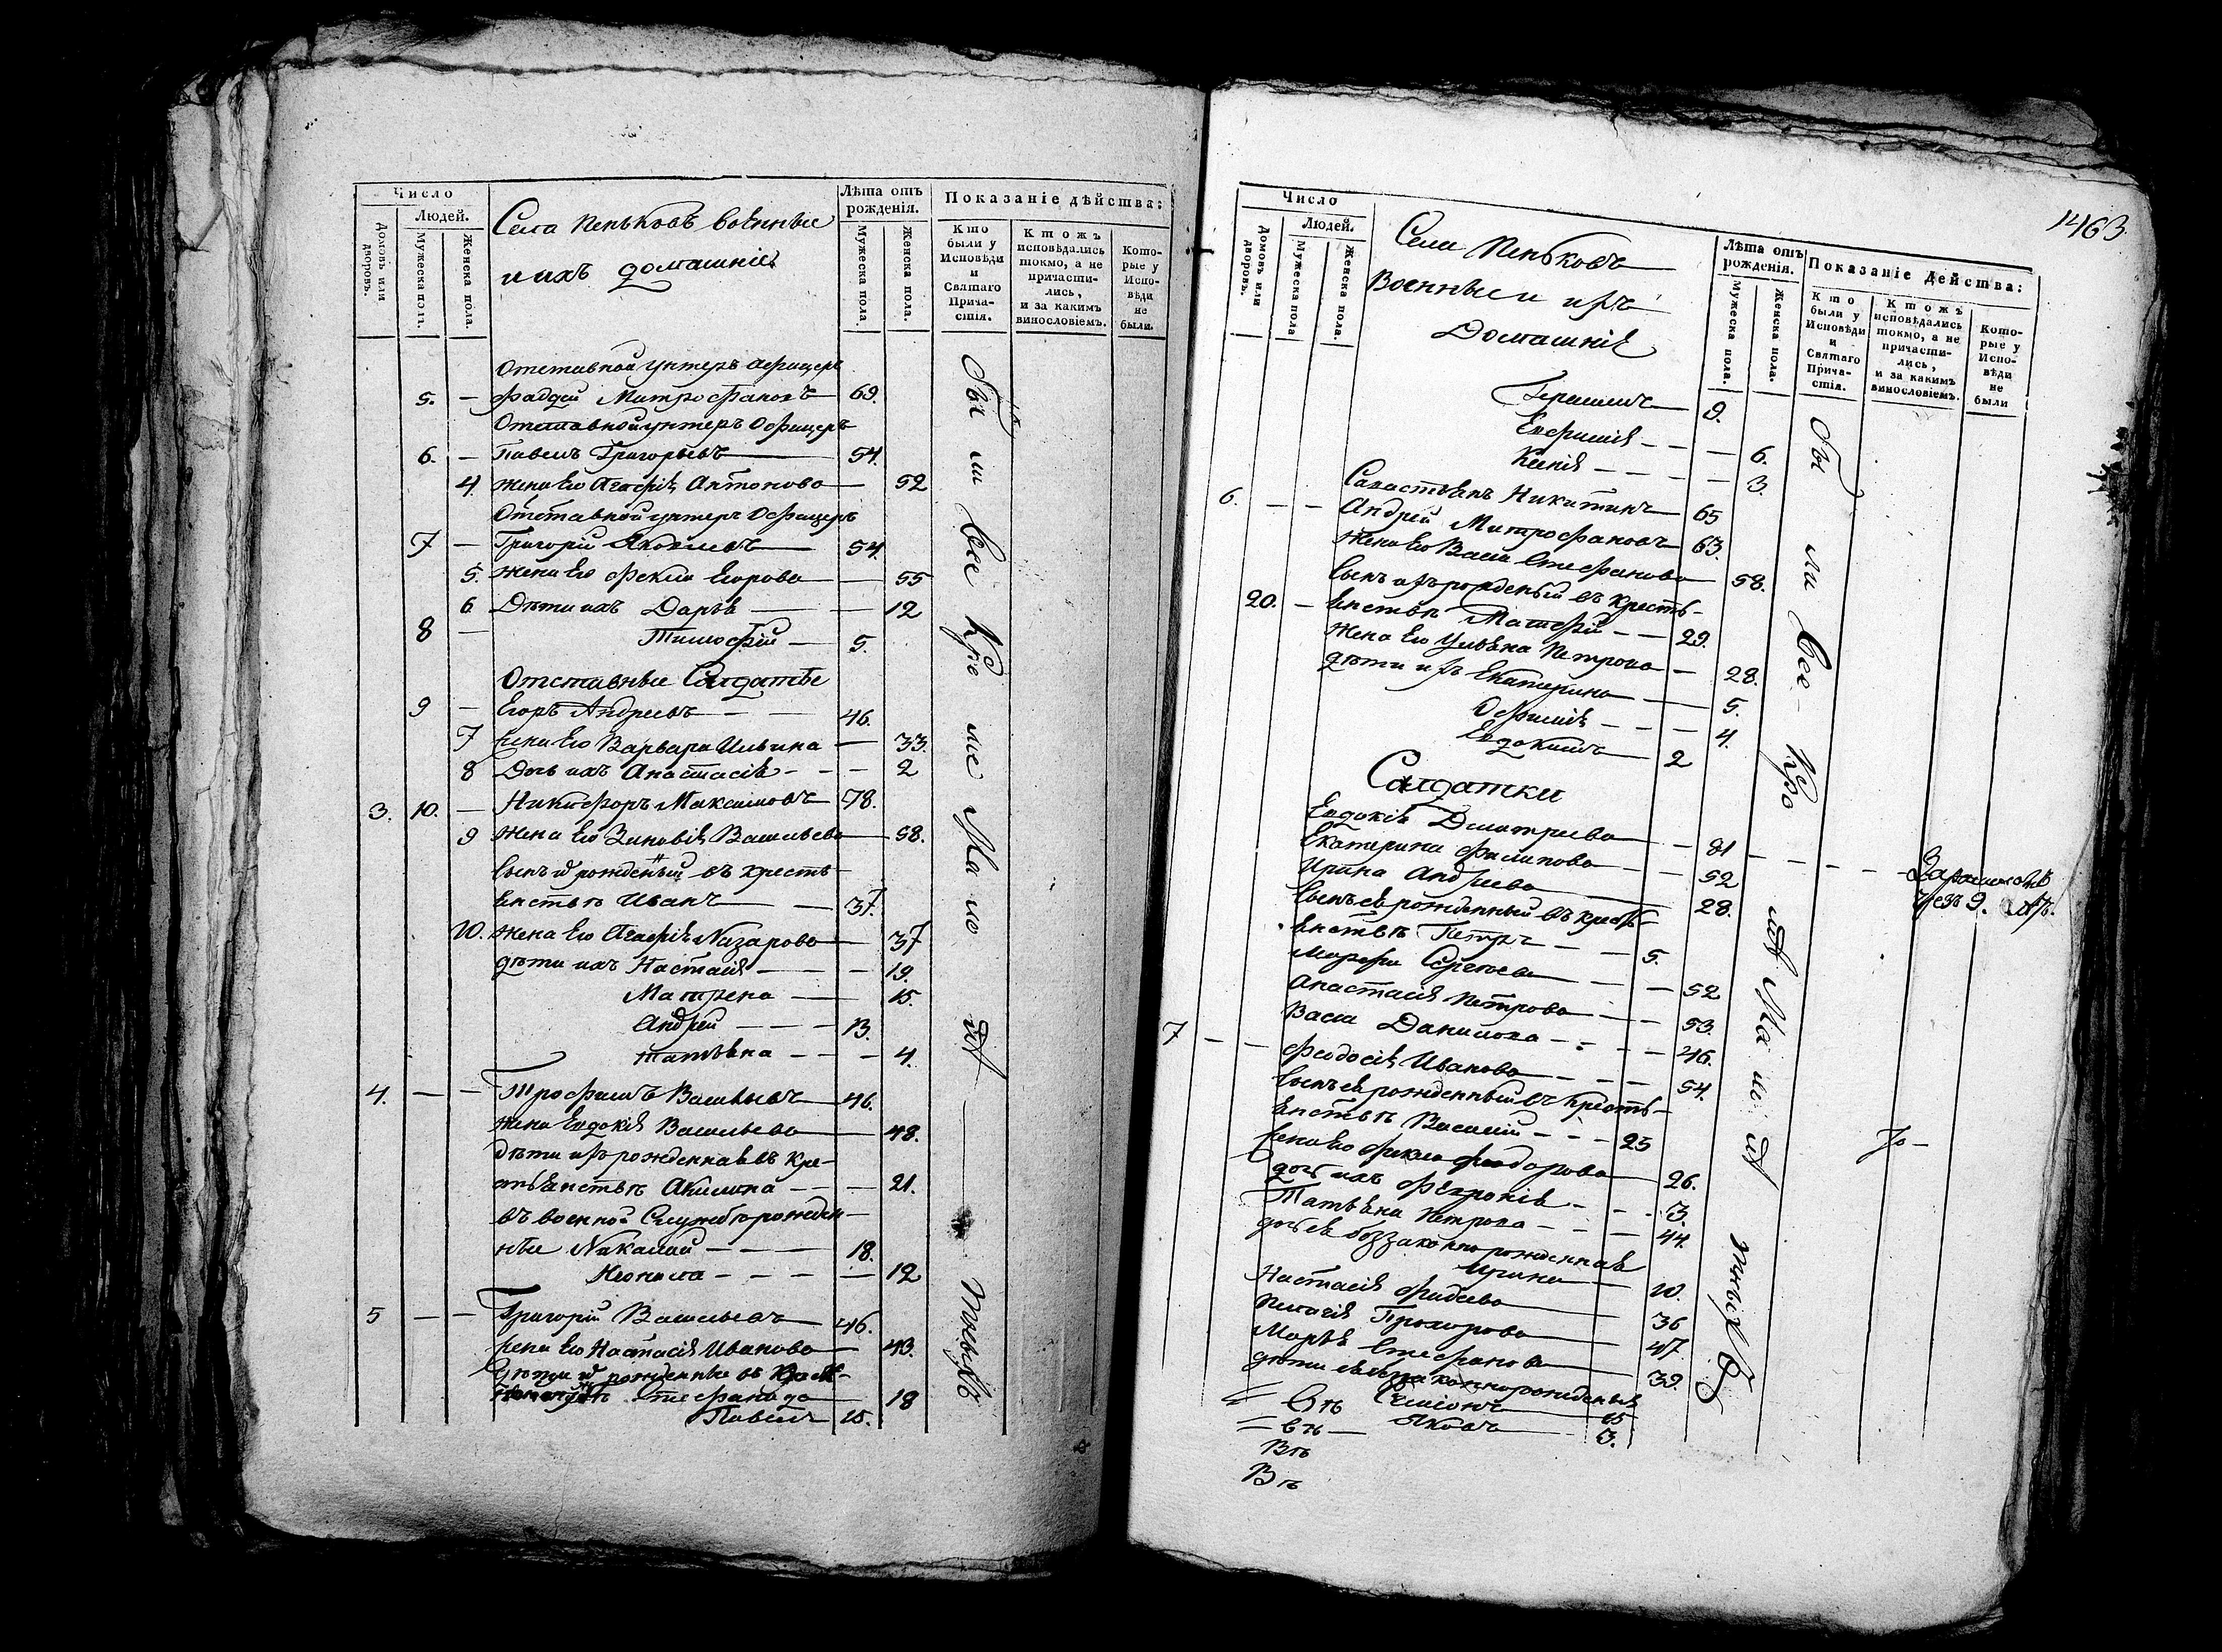 Число
Людей.
Домовъ или дворовъ.
Мужеска пола.
Женска пола.
Села Пеньковъ военные
и ихъ домашніе
Лѣта отъ рожденія.
Мужеска пола.
Женска пола.
Показаніе дѣйства:
Кто были у Исповѣди и Святаго Прича- стія.
Ктожъ исповѣдались токмо, а не причасти- лись, и за какимъ винословіемъ.
Кото- рые у Испо- вѣди не были.
Отставной унтеръ офицеръ
5. — Фаддей Митрофановъ 69.
Отставной унтеръ Офицеръ
6. — Павелъ Григорьевъ 54.
4. жена Его Агафія Антонова 52
Отставной унтеръ Офицеръ
7 — Григорій Яковлевъ 54.
5. жена Его Фекла Егорова 55
6 Дѣти ихъ Дарья 12
8 — Тимофей 5.
Отставные Салдаты
9 — Егоръ Андреевъ 46.
7 жена Его Варвара Ильина 33.
8 Дочь ихъ Анастасія 2
3. 10. — Никифоръ Максимовъ 78.
9 жена Его Зиновія Васильева 58.
сынъ их рожденный въ кресть-
енствѣ Иванъ 37.
10. жена Его Агафія Назарова 37
дѣти ихъ Настасія 19.
Матрена 15.
Андрей 13.
татьяна 4.
4. — — Трофимъ Васильевъ 46.
жена Евдокія Васильева 48.
дѣти ихъ рожденная въ кре-
стьянствѣ Акилина 21.
въ военной Службѣ рожден-
ные Николай 18.
Неонила 12
5 — — Григорій Васильевъ 46.
жена Его Настасія Иванова 43.
Дѣти их рожденные въ
Стефанида 18
Павелъ 15.
Были все кро ме Ма ло лѣ тныхъ
1463.
Число
Людей.
Домовъ или дворовъ.
Мужеска пола
Женска пола.
Села Пеньковъ
Военные и ихъ
Домашніе
Лѣта отъ рожденія.
Мужеска пола.
Женска пола.
Показаніе дѣйства:
Кто были у Исповѣди и Святаго Прича- стія.
Ктожъ исповѣдались токмо, а не причасти- лись, и за какимъ винословіемъ.
Кото- рые у Испо- вѣди не были
Герасимъ 9.
Евфимія 6.
Ксенія 3.
Савастьянъ Никитинъ 65
6. — — Андрей Митрофановъ 63.
жена Его Васса Стефанова 58.
сынъ ихъ рожденый въ кресть-
20. — енствѣ Матфей 29.
жена Его Ульяна Петрова 28.
дѣти ихъ Екатерина 5.
Офимія 4.
Евдокимъ 2
Салдатки
Евдокія Дмитриева 81
Екатерина Филипова 52
Ирина Андреева 28.
сынъ ея рожденный въ кресть-
енствѣ Петръ 5.
Марфа Сергеева 52
Анастасія Петрова 53.
Васса Данилова 46.
7 — — Феодосія Иванова 54.
сынъ ея рожденный въ кресть-
енствѣ Василій 25
жена Его Фекла Феодорова 26.
дочь ихъ Февронія 3.
Татьяна Петрова 44.
дочь ея беззаконно рожденная
Ирина 10.
Настасія Фадеева 36
Пелагія Прохорова 47.
Марья Стефанова 39.
дѣти ея беззаконнорожденыя
Симіонъ 15
Яковъ 3.
Вѣ
Вѣ
Были все кро мѣ Ма ло лѣ тныхъ